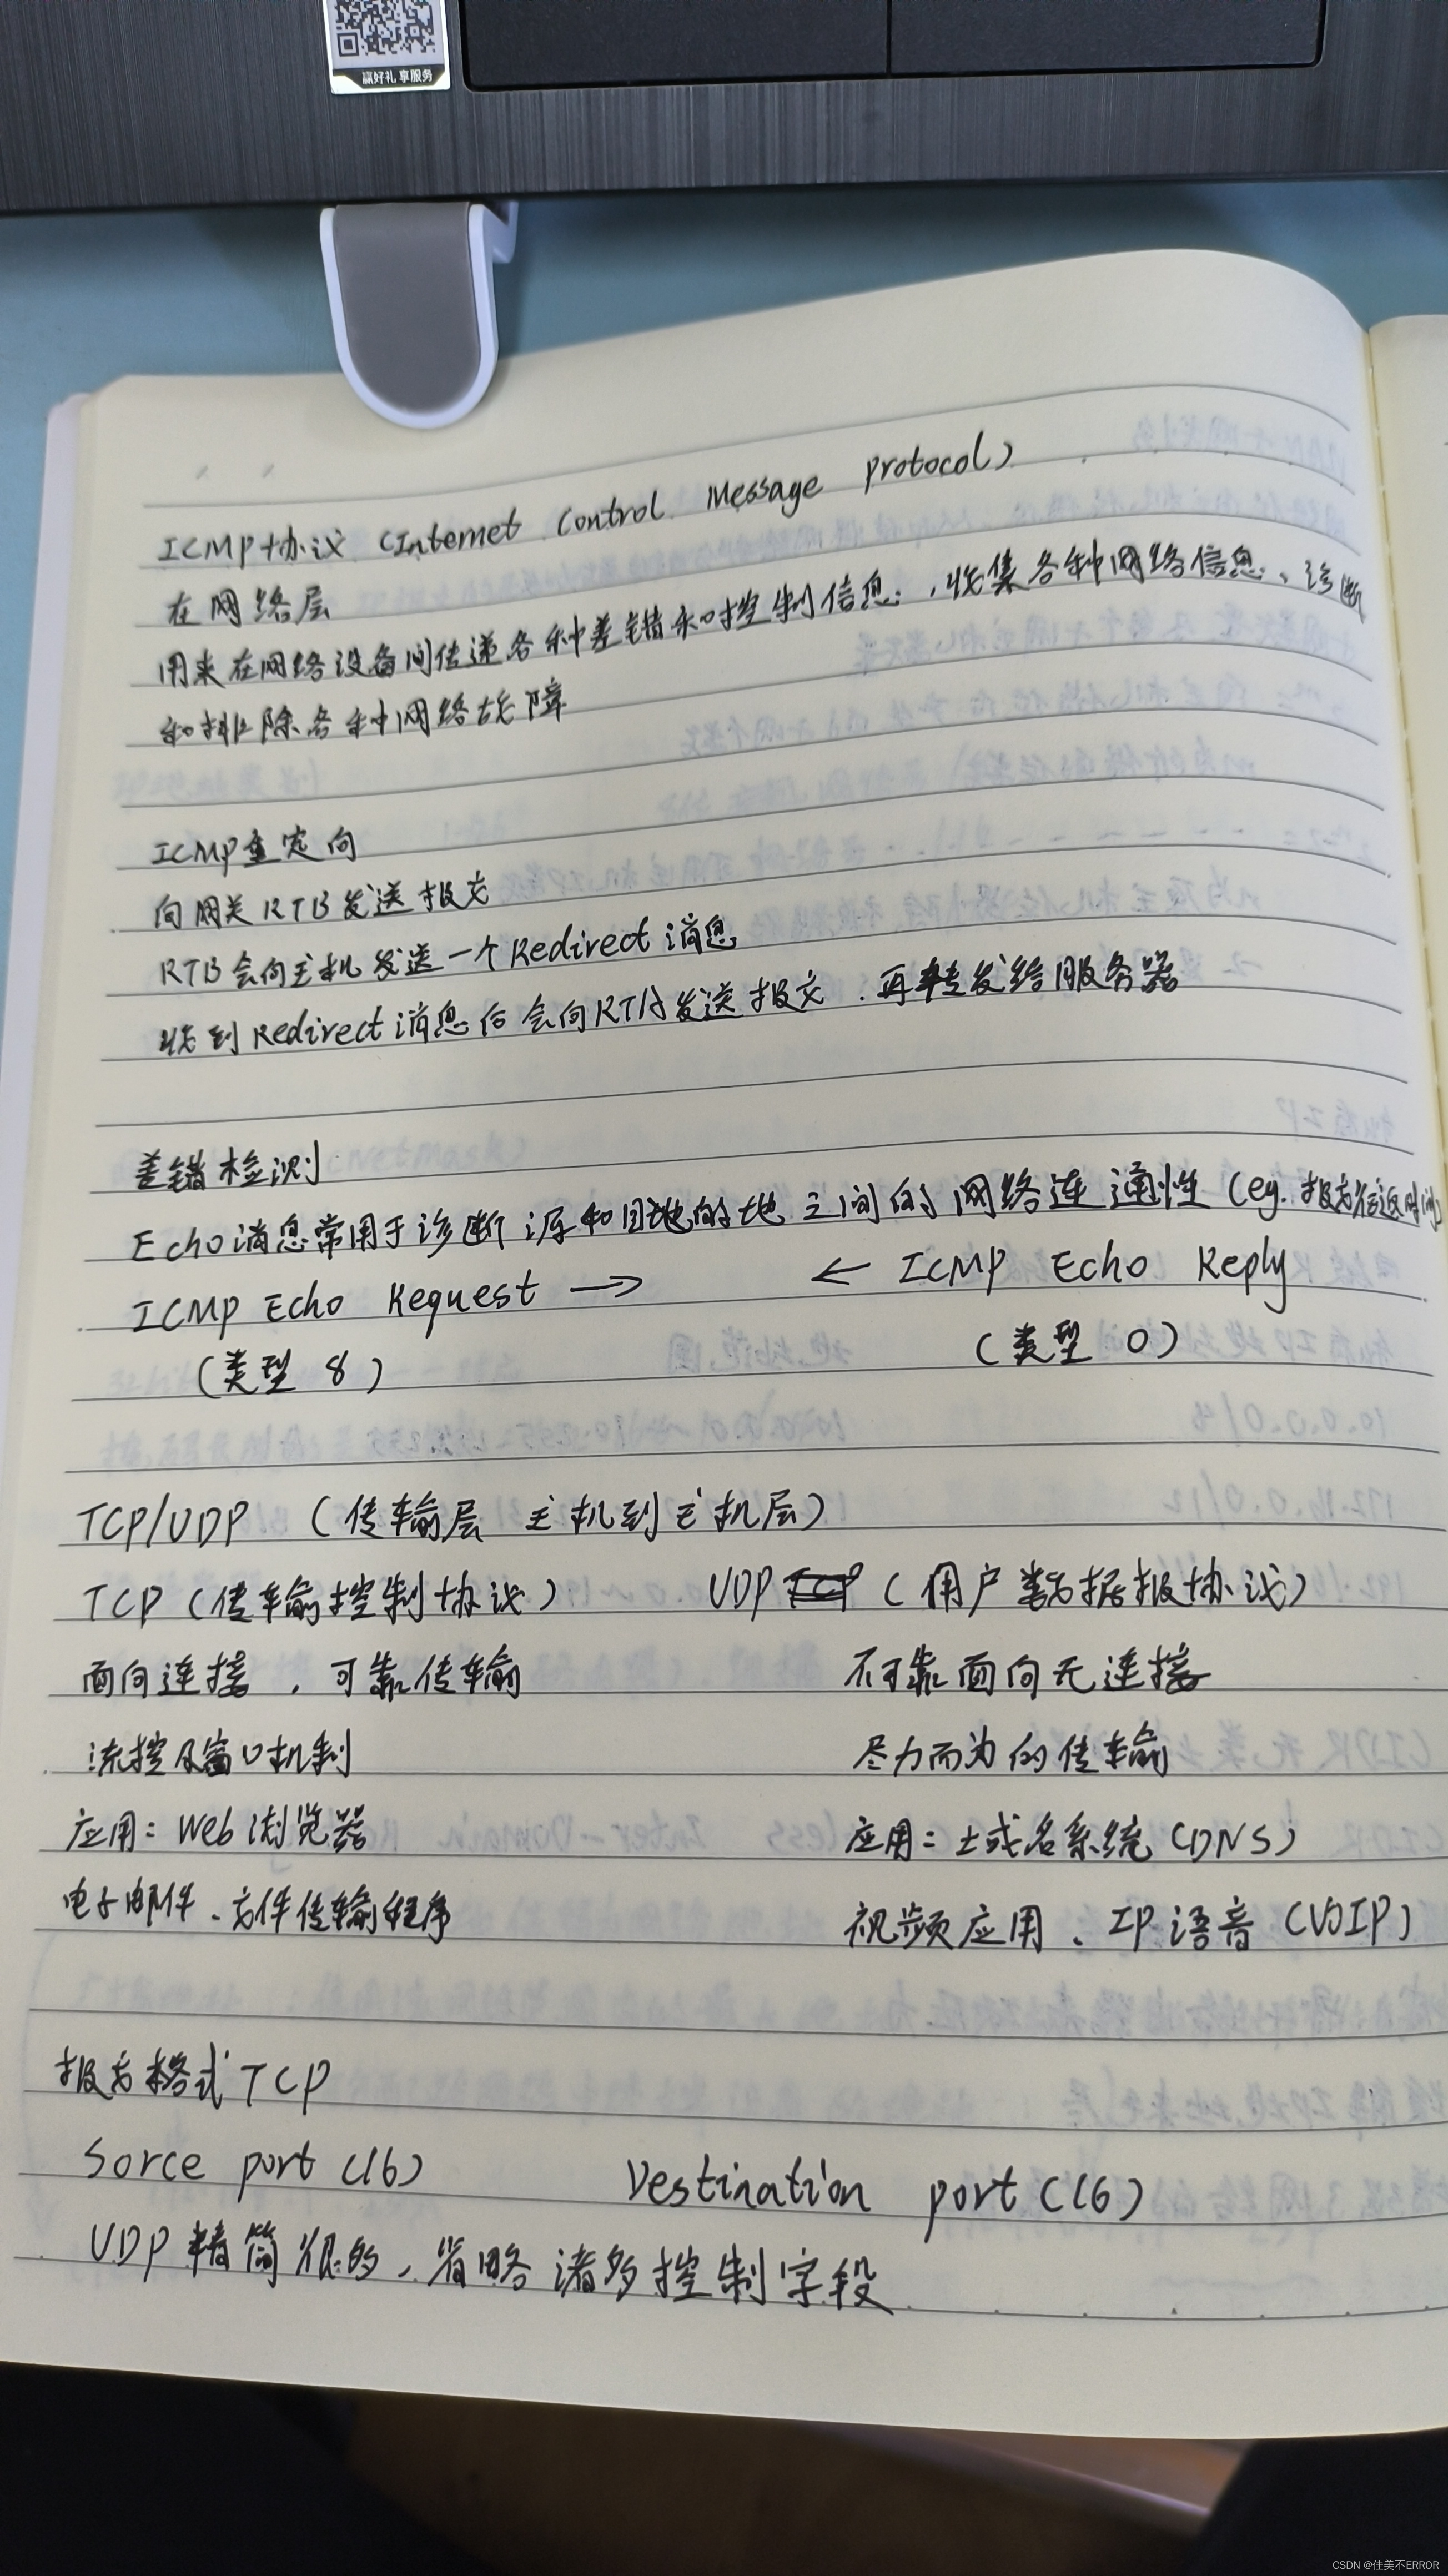 赢好礼 享服务
ICMP协议 (Internet Control Message Protocol)
在网络层
用来在网络设备间传递各种差错和控制信息，收集各种网络信息、诊断
和排除各种网络故障
ICMP重定向
向网关RTB发送报文
RTB会向主机发送一个Redirect消息
收到Redirect消息后会向RTA发送报文，再转发给服务器
差错检测
Echo消息常用于诊断源和目的地之间的网络连通性 (eg. 报文往返时间)
ICMP Echo Request → ← ICMP Echo Reply
(类型 8) (类型 0)
TCP/UDP (传输层 主机到主机层)
TCP (传输控制协议) UDP (用户数据报协议)
面向连接，可靠传输 不可靠面向无连接
流控及窗口机制 尽力而为的传输
应用: Web浏览器 应用: 域名系统 (DNS)
电子邮件、文件传输程序 视频应用、IP语音 (VOIP)
报文格式 TCP
Sorce port (16) Destination port (16)
UDP精简很多，省略诸多控制字段
CSDN @佳美不ERROR